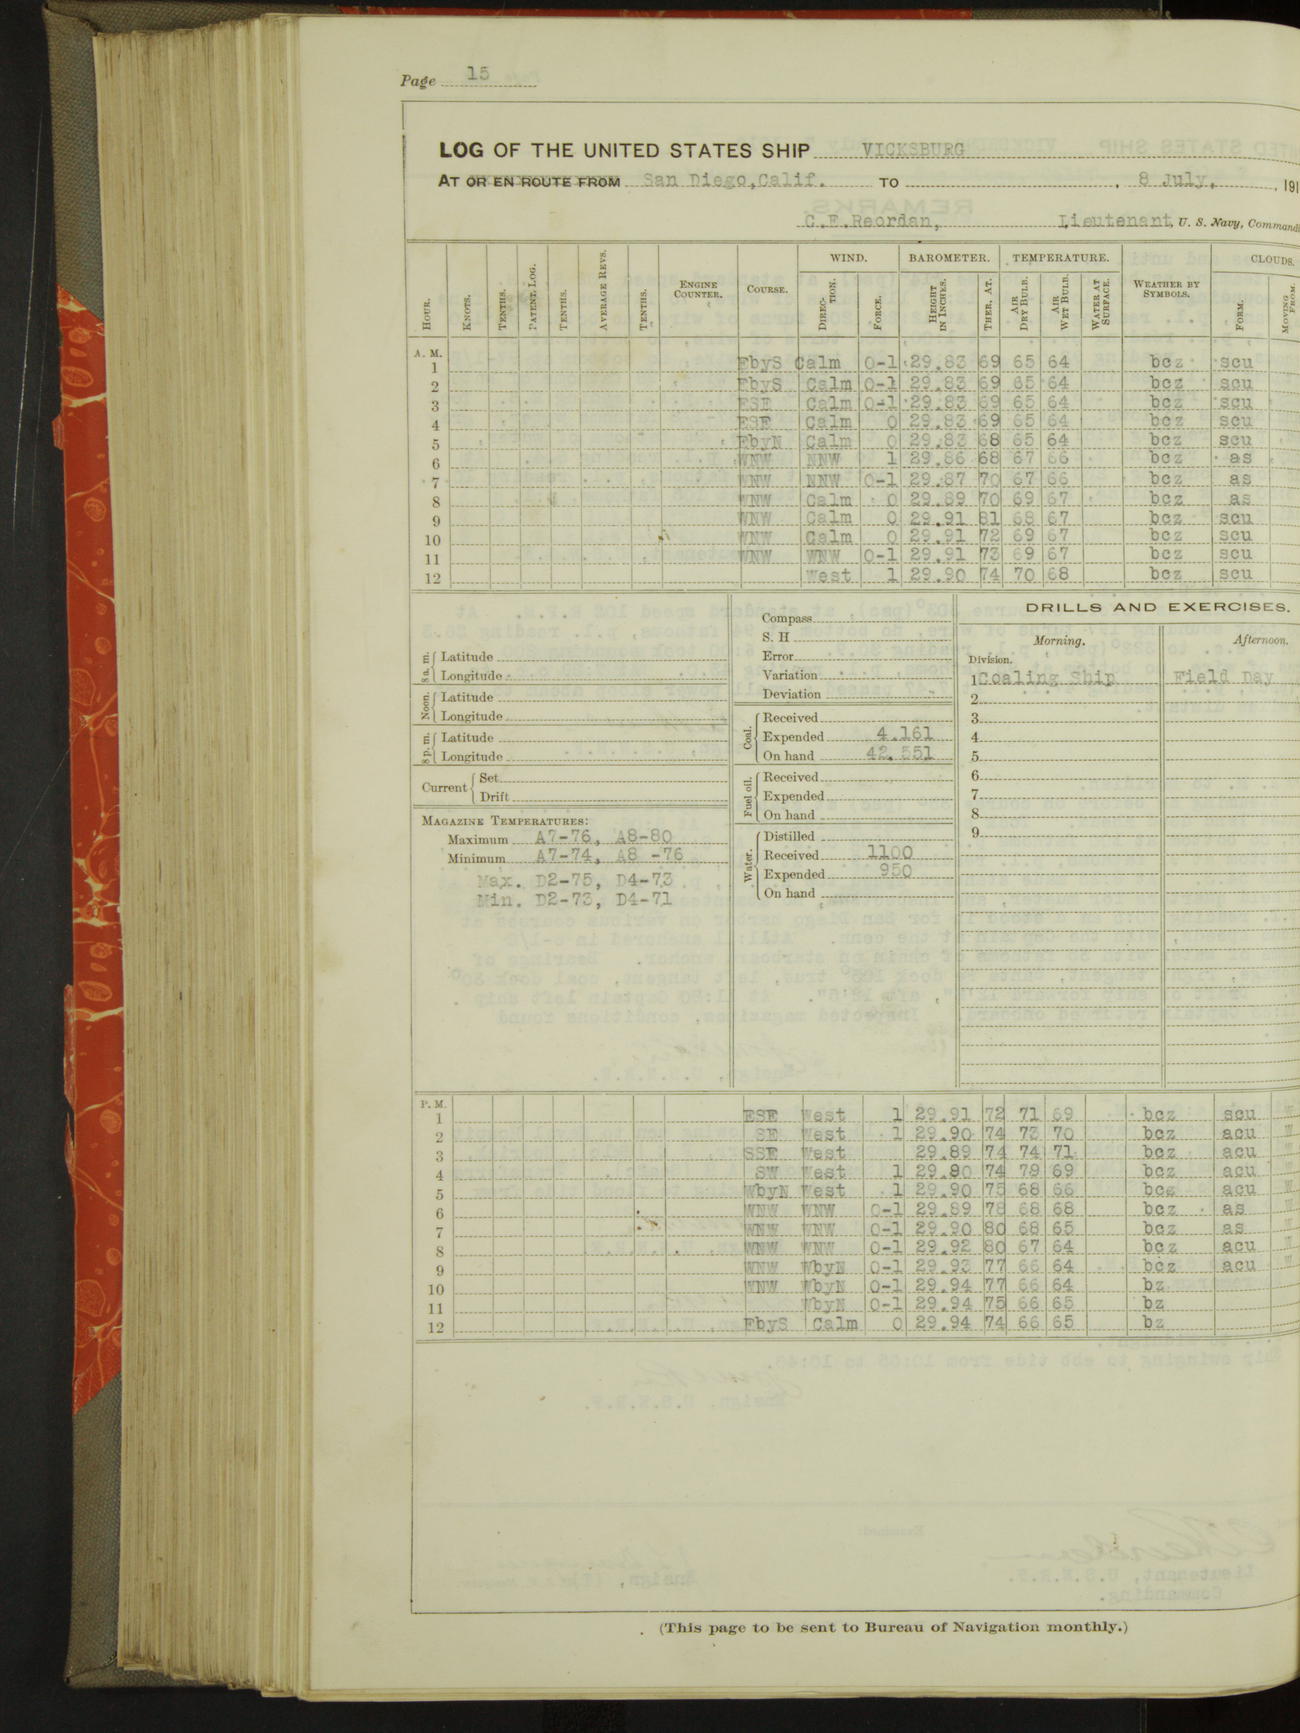 Page 15
LOG OF THE UNITED STATES SHIP VICKSBURG
AT OR EN ROUTE FROM San Diego, Calif. TO , 8 July, , 191
C.E.Reordan, Lieutenant, U. S. Navy, Command
HOUR. KNOTS. TENTHS. PATENT LOG. TENTHS. AVERAGE REVS. TENTHS. ENGINE COUNTER. COURSE. WIND. DIRECTION. FORCE. BAROMETER. HEIGHT IN INCHES. THER. AT. TEMPERATURE. AIR DRY BULB. AIR WET BULB. WATER AT SURFACE. WEATHER BY SYMBOLS. CLOUDS. FORM. MOVING FROM.
A. M.
1 EbyS Calm 0-1 29.83 69 65 64 bcz scu
2 EbyS Calm 0-1 29.83 69 65 64 bcz scu
3 ESE Calm 0-1 29.83 69 65 64 bcz scu
4 ESE Calm 0 29.83 69 65 64 bcz scu
5 EbyN Calm 0 29.83 68 65 64 bcz scu
6 WNW NNW 1 29.86 68 67 66 bcz as
7 WNW NNW 0-1 29.87 70 67 66 bcz as
8 WNW Calm 0 29.89 70 69 67 bcz as
9 WNW Calm 0 29.91 81 68 67 bcz scu
10 WNW Calm 0 29.91 72 69 67 bcz scu
11 WNW WNW 0-1 29.91 73 69 67 bcz scu
12 West 1 29.90 74 70 68 bcz scu
8 a. m. Latitude
Longitude
Noon. Latitude
Longitude
8 p. m. Latitude
Longitude
Current Set
Drift
MAGAZINE TEMPERATURES:
Maximum A7-76, A8-80
Minimum A7-74, A8 -76
Max. D2-75, D4-73
Min. D2-73, D4-71
Compass
S. H
Error
Variation
Deviation
Coal. Received
Expended 4.161
On hand 42.551
Fuel oil. Received
Expended
On hand
Water. Distilled
Received 1100
Expended 950
On hand
DRILLS AND EXERCISES.
Morning. Afternoon.
Division.
1 Coaling Ship Field Day
2
3
4
5
6
7
8
9
P. M.
1 ESE West 1 29.91 72 71 69 bcz scu W
2 SE West 1 29.90 74 73 70 bcz acu W
3 SSE West 29.89 74 74 71 bcz acu W
4 SW West 1 29.90 74 79 69 bcz acu W
5 WbyN West 1 29.90 75 68 66 bcz acu W
6 WNW WNW 0-1 29.89 78 68 68 bcz as W
7 WNW WNW 0-1 29.90 80 68 65 bcz as W
8 WNW WNW 0-1 29.92 80 67 64 bcz acu W
9 WNW WbyN 0-1 29.93 77 66 64 bcz acu W
10 WNW WbyN 0-1 29.94 77 66 64 bz
11 WbyN 0-1 29.94 75 66 65 bz
12 EbyS Calm 0 29.94 74 66 65 bz
(This page to be sent to Bureau of Navigation monthly.)